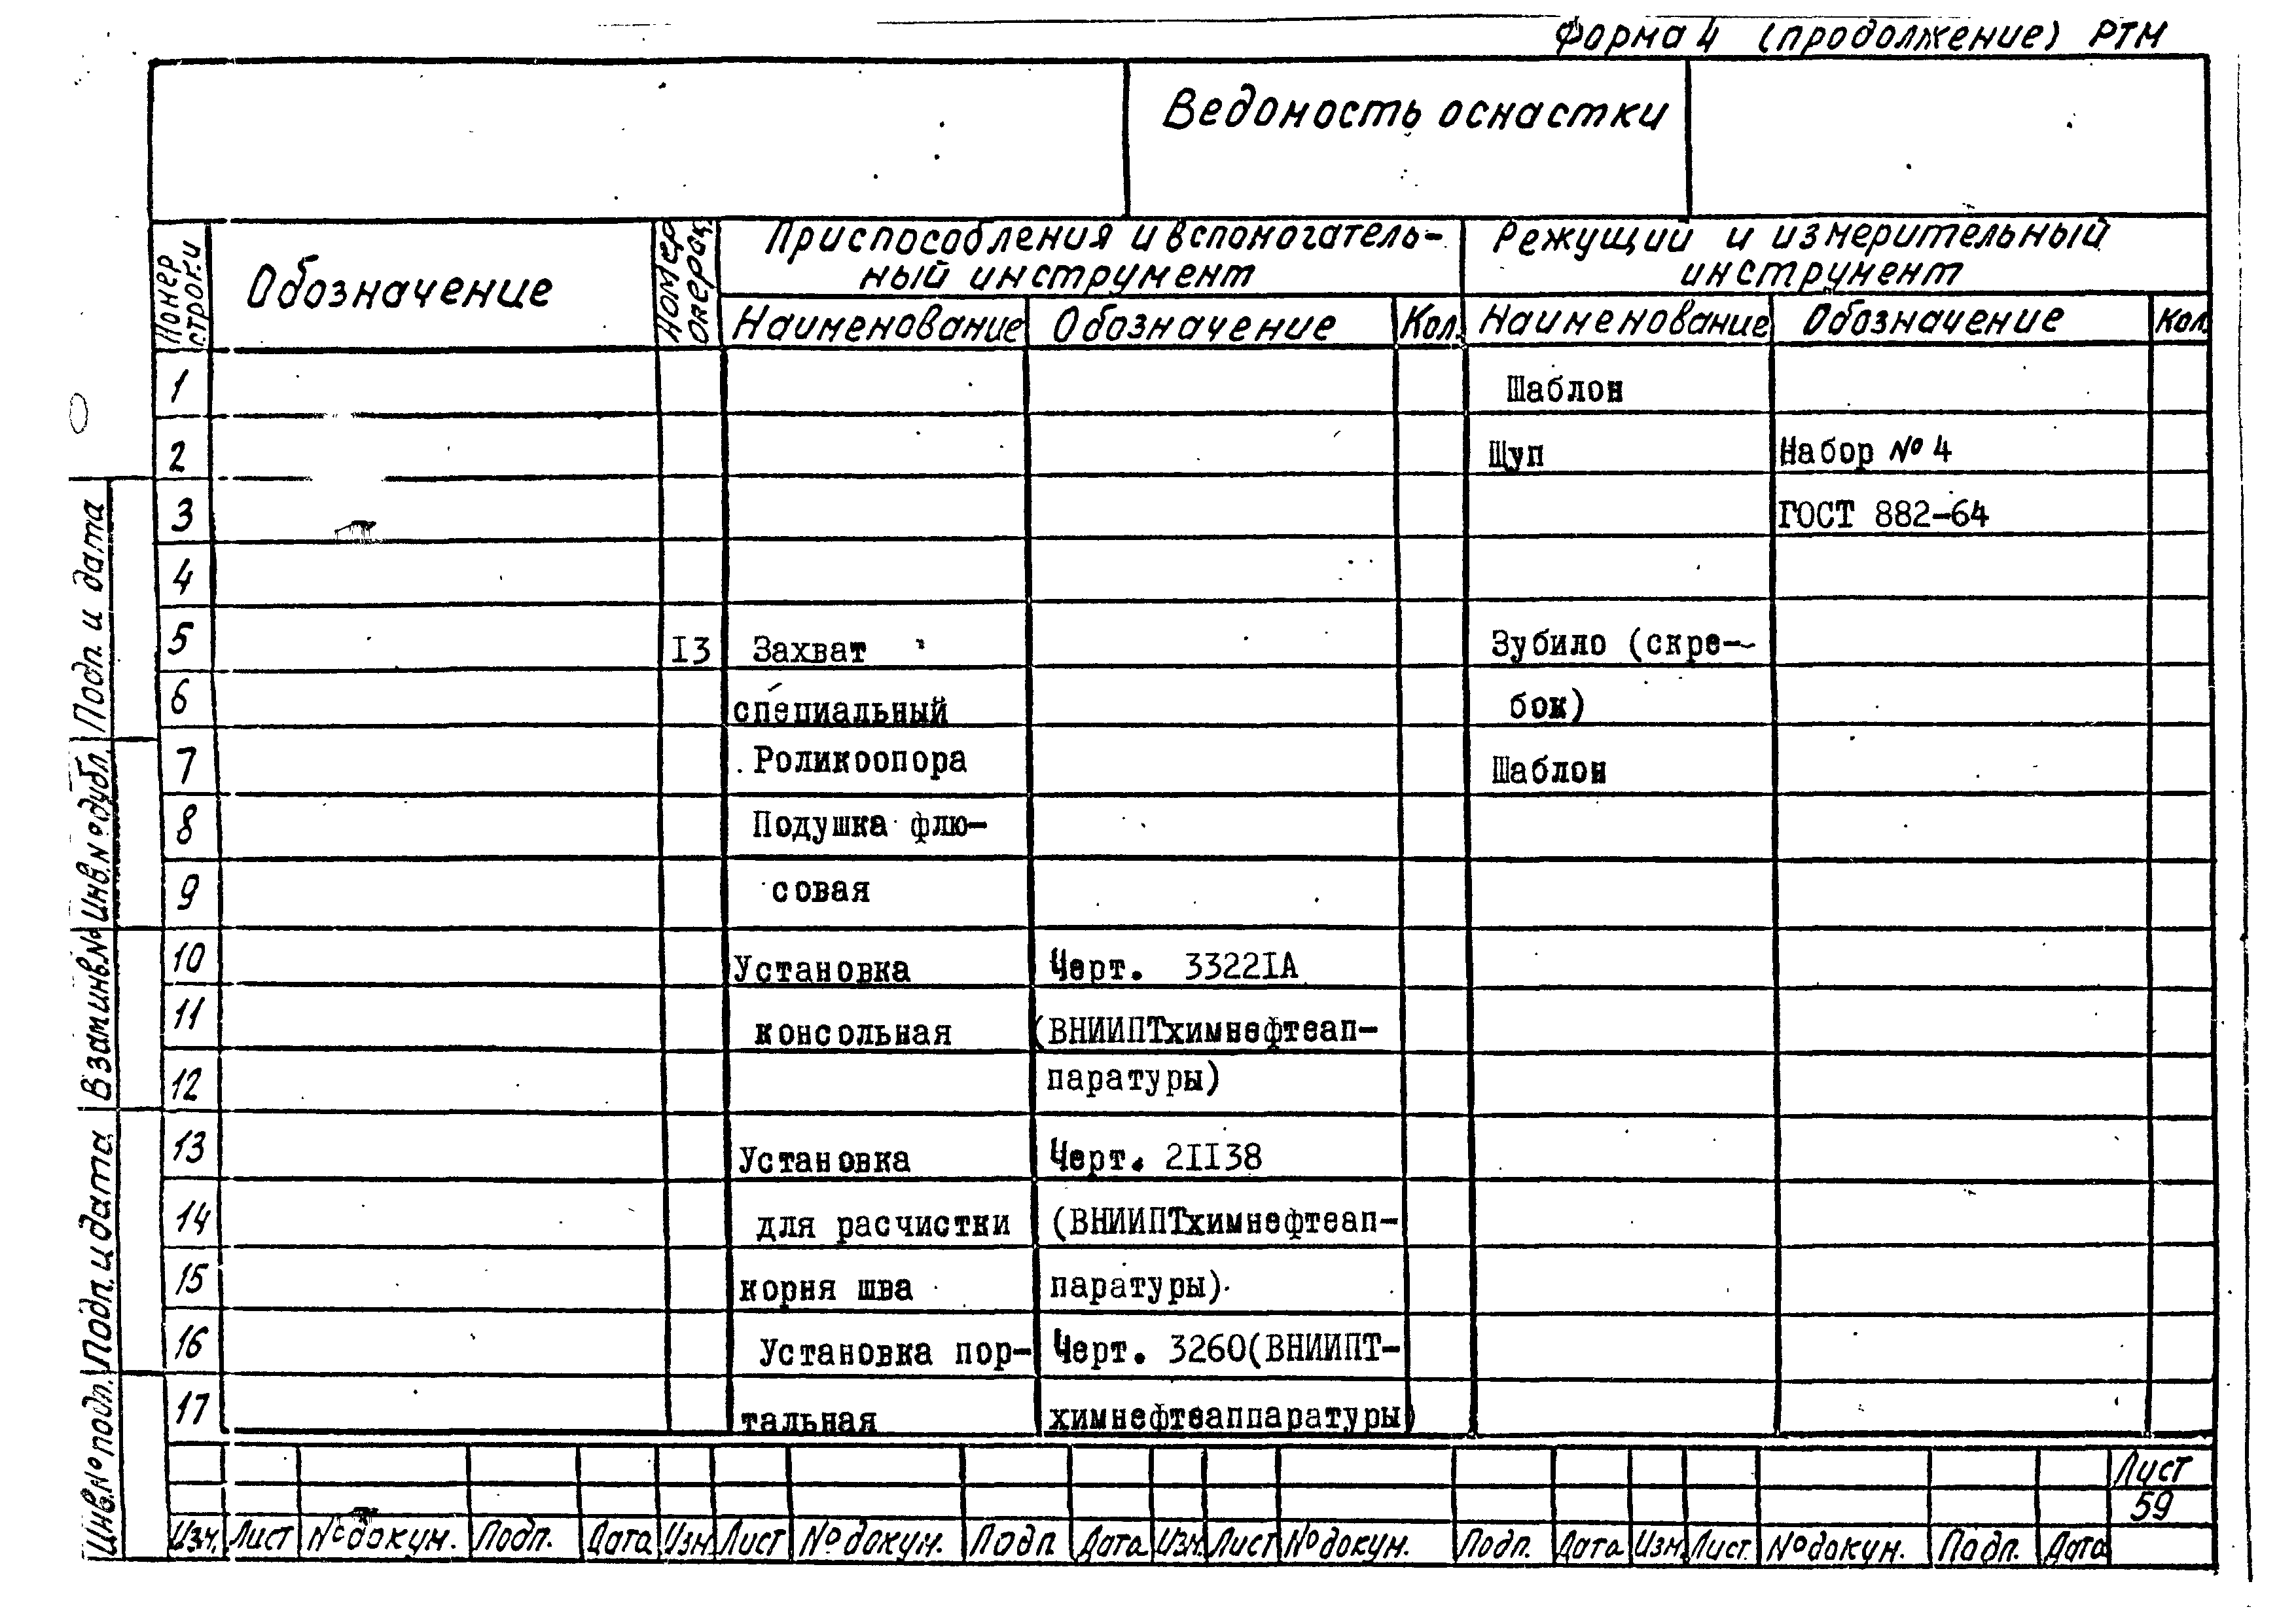 Форма 4 (продолжение) РТМ
Ведомость оснастки
Номер строки
Обозначение
Номер операц.
Приспособления и вспомогатель-
ный инструмент
Режущий и измерительный
инструмент
Наименование Обозначение Кол. Наименование Обозначение Кол.
1 Шаблон
2 Щуп Набор № 4
3 ГОСТ 882-64
4
5 I3 Захват Зубило (скре-
6 специальный бок)
7 Роликоопора Шаблон
8 Подушка флю-
9 совая
10 Установка Черт. 3322IА
11 консольная (ВНИИПТхимнефтеап-
12 паратуры)
13 Установка Черт. 2II38
14 для расчистки (ВНИИПТхимнефтеап-
15 корня шва паратуры)
16 Установка пор- Черт. 3260(ВНИИПТ-
17 тальная химнефтеаппаратуры)
Лист
59
Изм. Лист № докум. Подп. Дата Изм Лист № докум. Подп Дата Изм. Лист № докум. Подп. Дата Изм. Лист. № докум. Подп. Дата
Подп. и дата
Инв. № дубл.
Взам инв. №
Подп. и дата
Инв. № подп.